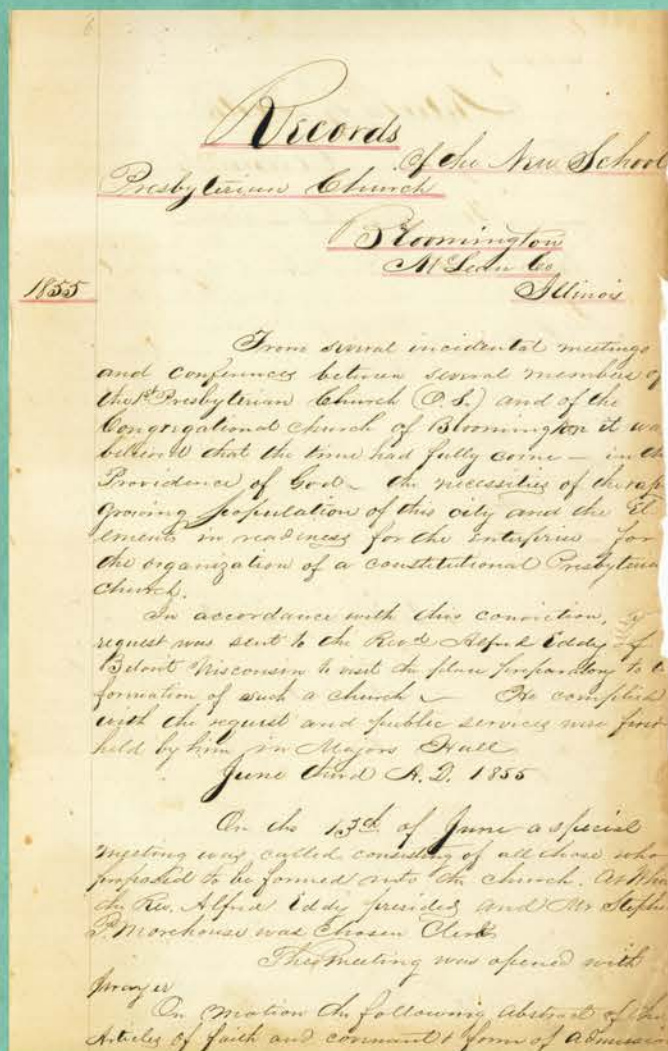 6
Records
of the New School
Presbyterian Church
Bloomington
McLean Co
Illinois
1855
From several incidental meetings
and conferences between several members of
the 1st Presbyterian Church (O.S.) and of the
Congregational Church of Bloomington it was
believed that the time had fully come — in the
Providence of God — the necessities of the rap
growing population of this city and the El
ements in readiness for the enterprise for
the organization of a constitutional Presbyterian
church.
In accordance with this conviction, a
request was sent to the Revd Alfred Eddy of
Beloit Wisconsin to visit the place preparatory to
formation of such a church — He complied
with the request and public services were first
held by him in Majors Hall
June third A.D. 1855
On the 13th of June a special
meeting was called consisting of all those who
proposed to be formed into the church. At Which
the Rev. Alfred Eddy presided and Mr Stephen
P. Morehouse was Chosen Clerk
The meeting was opened with
prayer
On motion the following Abstract of the
Articles of faith and covenant & form of admission